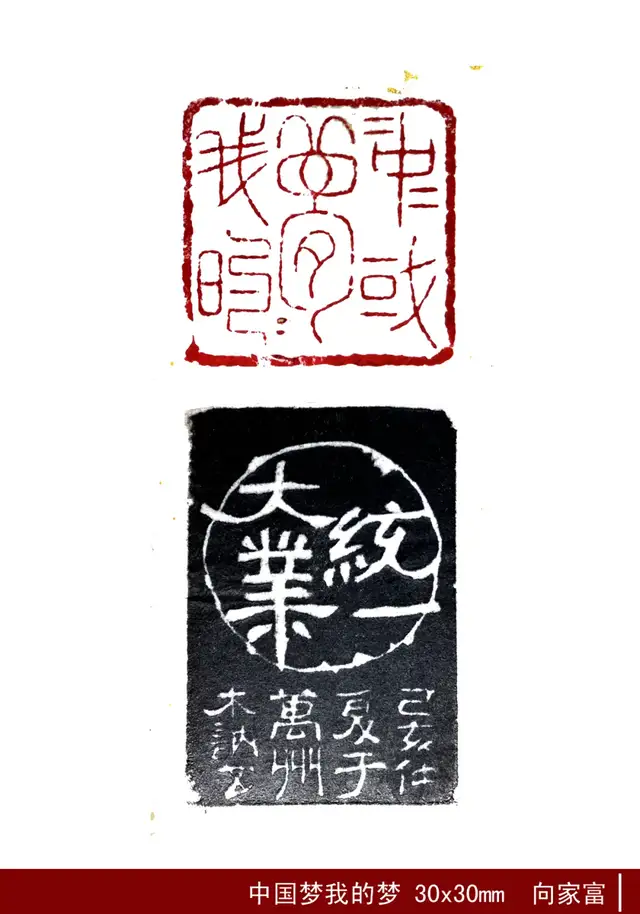 中或夢我的夢
統一大業
己亥仕
夏于
萬州
木訥
中国梦我的梦 30x30mm 向家富